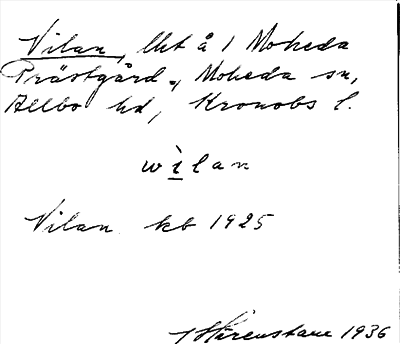 Vilan, lht å 1 Moheda
Prästgård, Moheda sn,
Allbo hd, Kronobs l.
wìlan
Vilan kb 1925
Hårenstam 1936